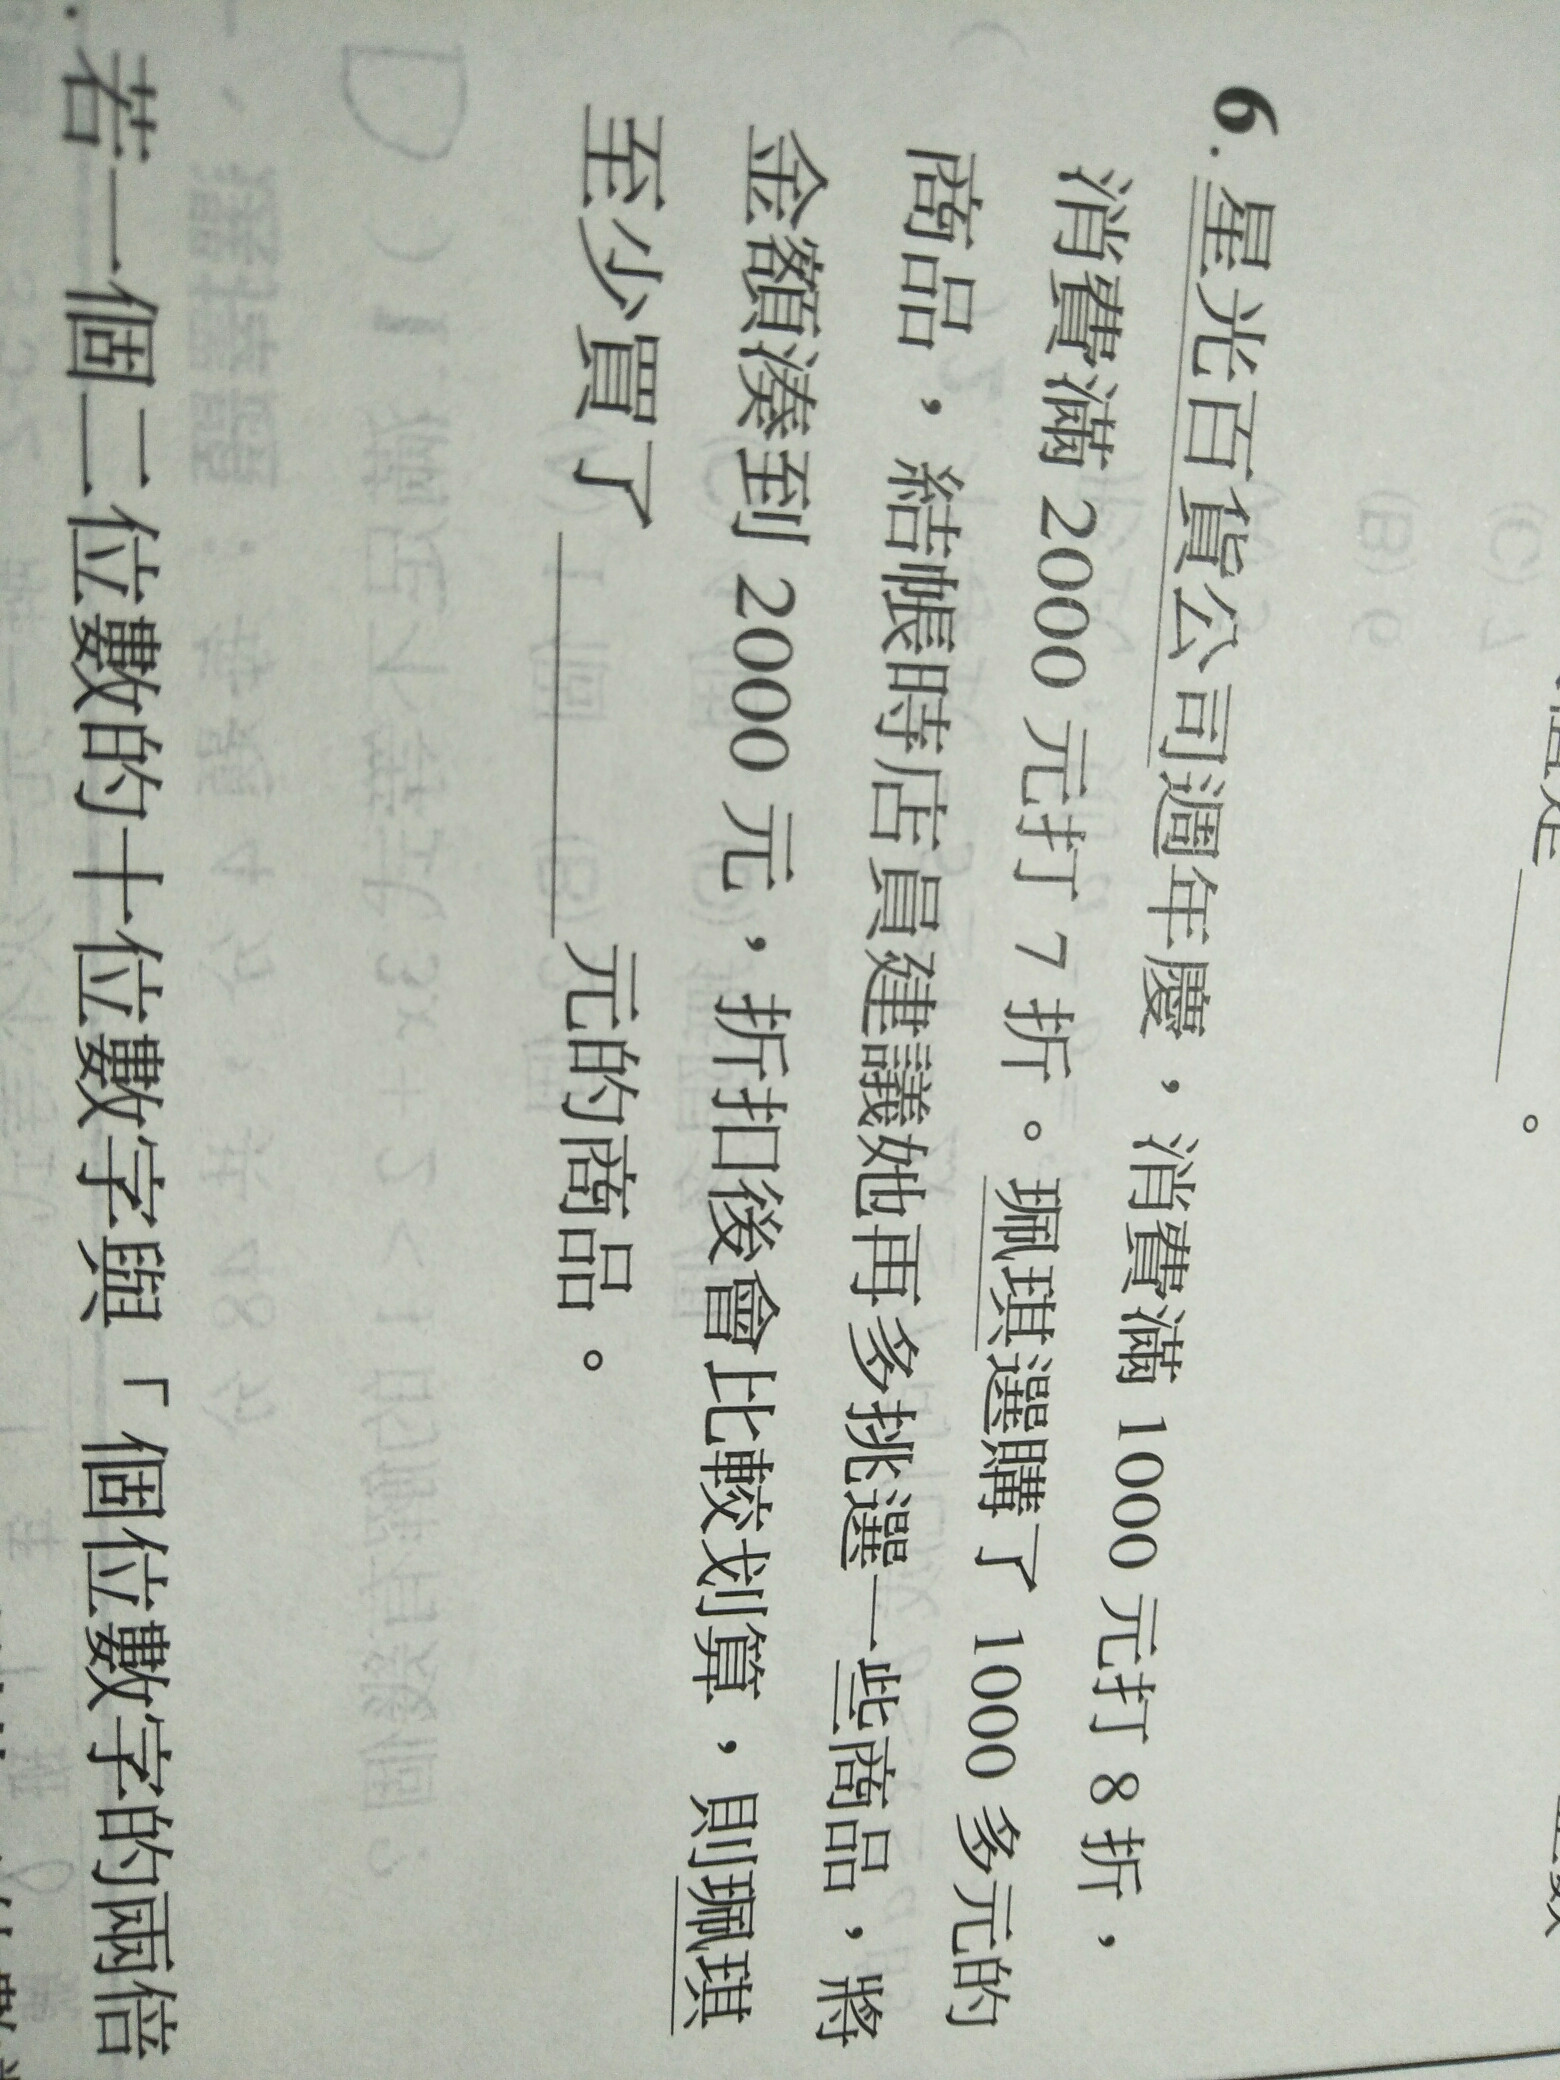 6. 星光百貨公司週年慶，消費滿 1000 元打 8 折，
消費滿 2000 元打 7 折。珮琪選購了 1000 多元的
商品，結帳時店員建議她再多挑選一些商品，將
金額湊到 2000 元，折扣後會比較划算，則珮琪
至少買了元的商品。
若一個二位數的十位數字與「個位數字的兩倍